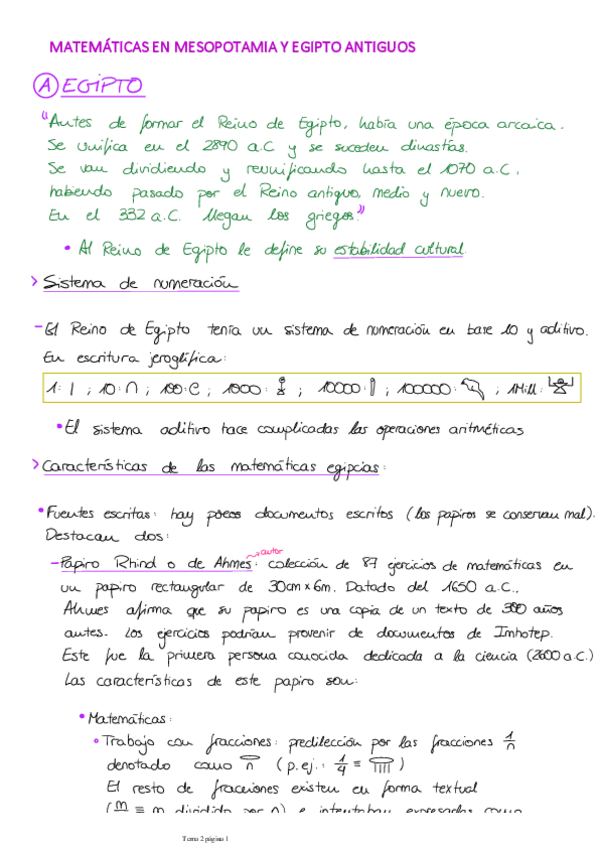 MATEMÁTICAS EN MESOPOTAMIA Y EGIPTO ANTIGUOS
A EGIPTO
"Antes de formar el Reino de Egipto, había una época arcaica.
Se unifica en el 2890 a.C y se suceden dinastías.
Se van dividiendo y reunificando hasta el 1070 a.C,
habiendo pasado por el Reino antiguo, medio y nuevo.
En el 332 a.C. llegan los griegos."
• Al Reino de Egipto le define su estabilidad cultural.
> Sistema de numeración
- El Reino de Egipto tenía un sistema de numeración en base 10 y aditivo.
En escritura jeroglífica:
1: | ; 10: ∩ ; 100: ; 1000: ; 10000: ; 100000: ; 1Mill:
• El sistema aditivo hace complicadas las operaciones aritméticas
> Características de las matemáticas egipcias:
• Fuentes escritas: hay pocos documentos escritos (los papiros se conservan mal).
Destacan dos:
autor
- Papiro Rhind o de Ahmes: colección de 87 ejercicios de matemáticas en
un papiro rectangular de 30cm x 6m. Datado del 1650 a.C.,
Ahmes afirma que su papiro es una copia de un texto de 300 años
antes. Los ejercicios podrían provenir de documentos de Imhotep.
Este fue la primera persona conocida dedicada a la ciencia (2600 a.C.)
Las características de este papiro son:
• Matemáticas:
∘ Trabajo con fracciones: predilección por las fracciones 1/n
denotado como n (p.ej.: 1/4 = )
El resto de fracciones existen en forma textual
(m/n ≡ m dividido por n) e intentaban expresarlas como
Tema 2 página 1